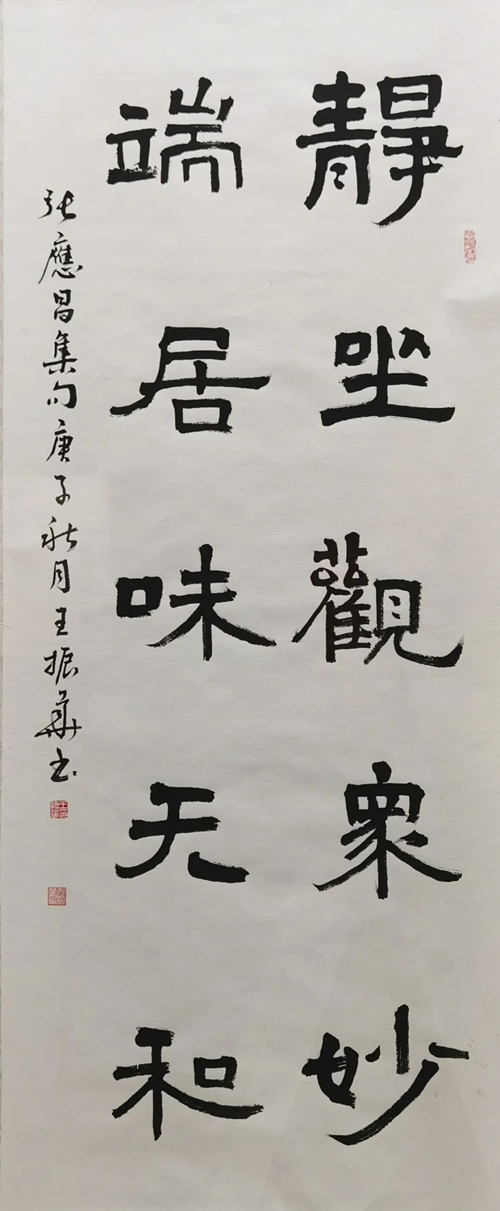 靜坐觀衆妙
端居味天和
張應昌集句庚子秋月王振華书